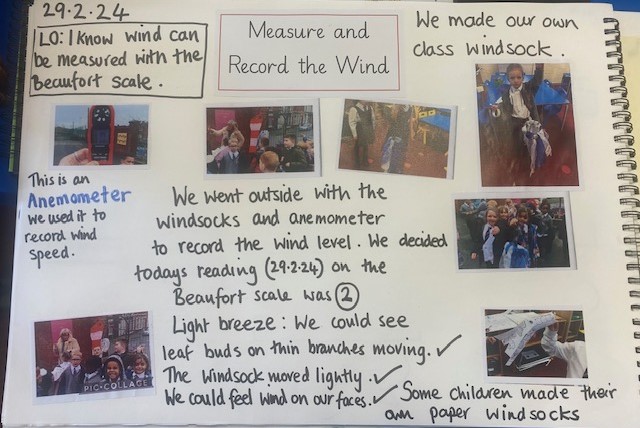 29.2.24
LO: I know wind can
be measured with the
Beaufort Scale.
Measure and
Record the Wind
We made our own
class windsock.
This is an
Anemometer
we used it to
record wind
speed.
We went outside with the
windsocks and anemometer
to record the wind level. We decided
todays reading (29.2.24) on the
Beaufort scale was 2
Light breeze: We could see
leaf buds on thin branches moving. ✓
The windsock moved lightly. ✓
We could feel wind on our faces. ✓
PIC•COLLAGE
Some children made their
own paper windsocks